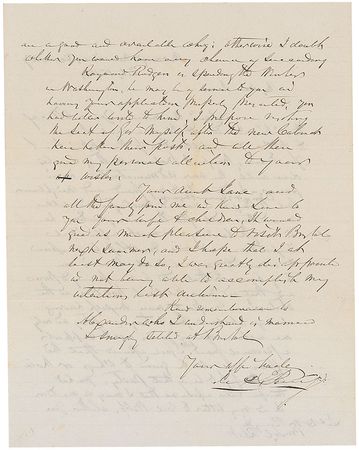 are a good and available ship; otherwise I doubt
whether you would have any chance of succeeding
Raymond Rodgers is spending the Winter
in Washington, he may be of service to you in
having your application properly presented, you
had better write to him, I propose visiting
the Seat of Govt myself, after the new Cabinet
have taken their posts, and will then
give my personal attention to your
wishes.
Your aunt Jane and
all the family join me in kind love to
you your wife & children, it would
give us much pleasure to visit Bristol
next summer, and I hope that I at
least may do so, I was greatly disappointed
in not being able to accomplish my
intentions last autumn
Kind remembrances to
Alexander who I understand is married
& snugly settled at Bristol
Your affe uncle
M C Perry